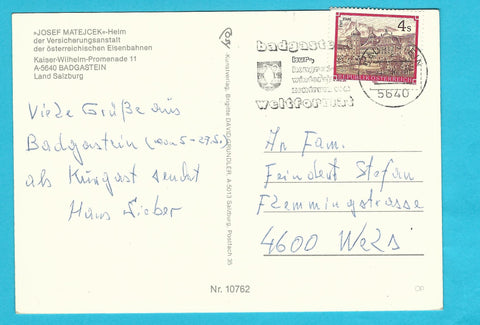 »JOSEF MATEJCEK«-Heim
der Versicherungsanstalt
der österreichischen Eisenbahnen
Kaiser-Wilhelm-Promenade 11
A-5640 BADGASTEIN
Land Salzburg
Viele Grüße aus
Badgastein (vom 5-29.5.)
als Kurgast sendet
Hans Sieber
Kunstverlag, Brigitte DAVID A-5013 Salzburg, Postfach 35
badgastein
kur
weltformat
5640
4 S
REPUBLIK ÖSTERREICH
An Fam.
Feindert Stefan
Flemmingstrasse
4600 Wels
Nr. 10762